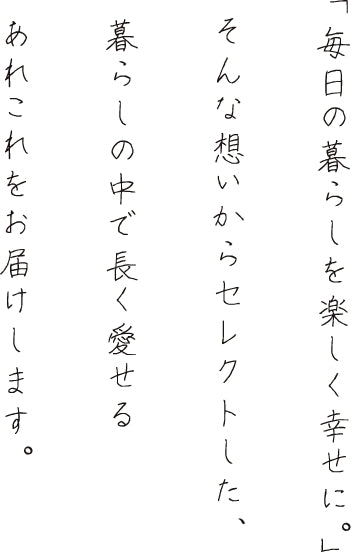 「毎日の暮らしを楽しく幸せに。」
そんな想いからセレクトした、
暮らしの中で長く愛せる
あれこれをお届けします。